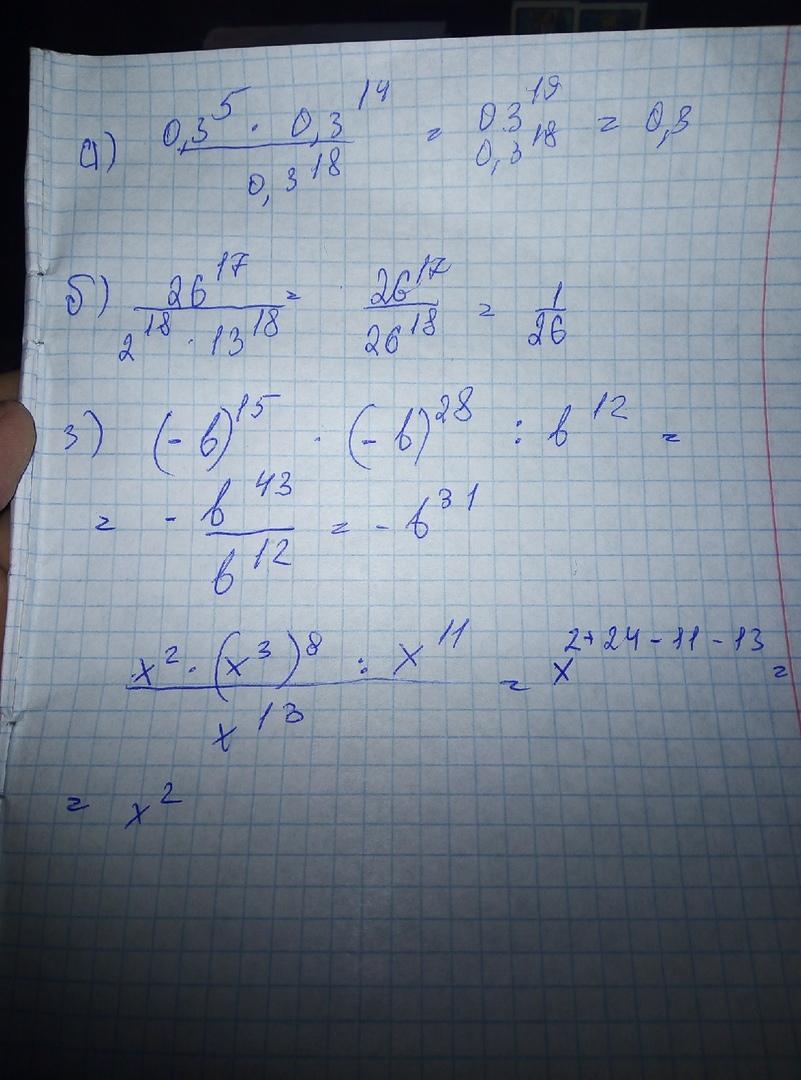 а) 0,3^5 · 0,3^14 / 0,3^18 = 0,3^19 / 0,3^18 = 0,3
б) 26^17 / 2^18 · 13^18 = 26^17 / 26^18 = 1/26
3) (-b)^15 · (-b)^28 : b^12 =
= - b^43 / b^12 = - b^31
x^2 · (x^3)^8 : x^11 / x^13 = x^2+24-11-13 =
= x^2